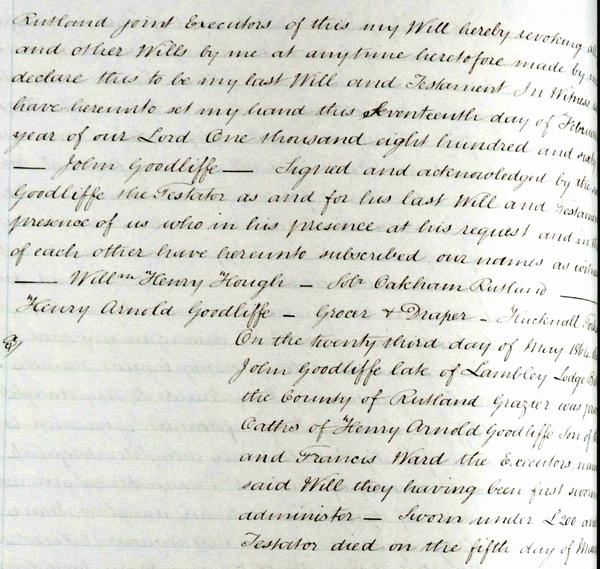 Rutland joint Executors of this my Will hereby revoking all
and other Wills by me at anytime heretofore made by me
declare this to be my last Will and Testament In Witness
have hereunto set my hand this Seventeenth day of Februa
year of our Lord One thousand eight hundred and sixty
— John Goodliffe — Signed and acknowledged by the
Goodliffe the Testator as and for his last Will and Testamen
presence of us who in his presence at his request and in th
of each other have hereunto subscribed our names as witne
— Willm Henry Hough — Solr Oakham Rutland —
Henry Arnold Goodliffe — Grocer & Draper — Hucknall
On the twenty third day of May 1864
John Goodliffe late of Lambley Lodge
the County of Rutland Grazier was pro
Oaths of Henry Arnold Goodliffe Son of
and Francis Ward the Executors nam
said Will they having been first sworn
administer — Sworn under £200 an
Testator died on the fifth day of Ma